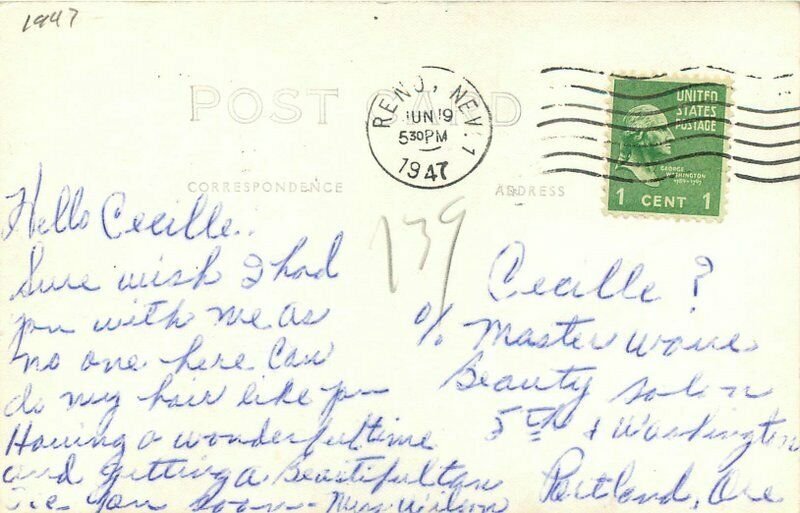 1947
POST CARD
RENO, NEV. 1
JUN 19
5 30 PM
1947
UNITED
STATES
POSTAGE
GEORGE
WASHINGTON
1789-1797
1 CENT 1
CORRESPONDENCE
ADDRESS
139
Hello Cecille..
Sure wish I had
you with me as
no one here can
do my hair like you
Having a wonderful time
and getting a Beautiful tan
See you soon - Miss Wilson
Cecille ?
% Master wave
Beauty salon
5th & Washington
Portland, Ore